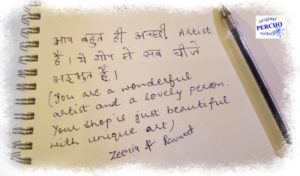 आप बहुत ही अच्छी Artist
हैं। ये शोप में सब चीजे
अद्भुत हैं।
(You are a wonderful
artist and a lovely person.
Your shop is just beautiful
with unique art).
PERCHO